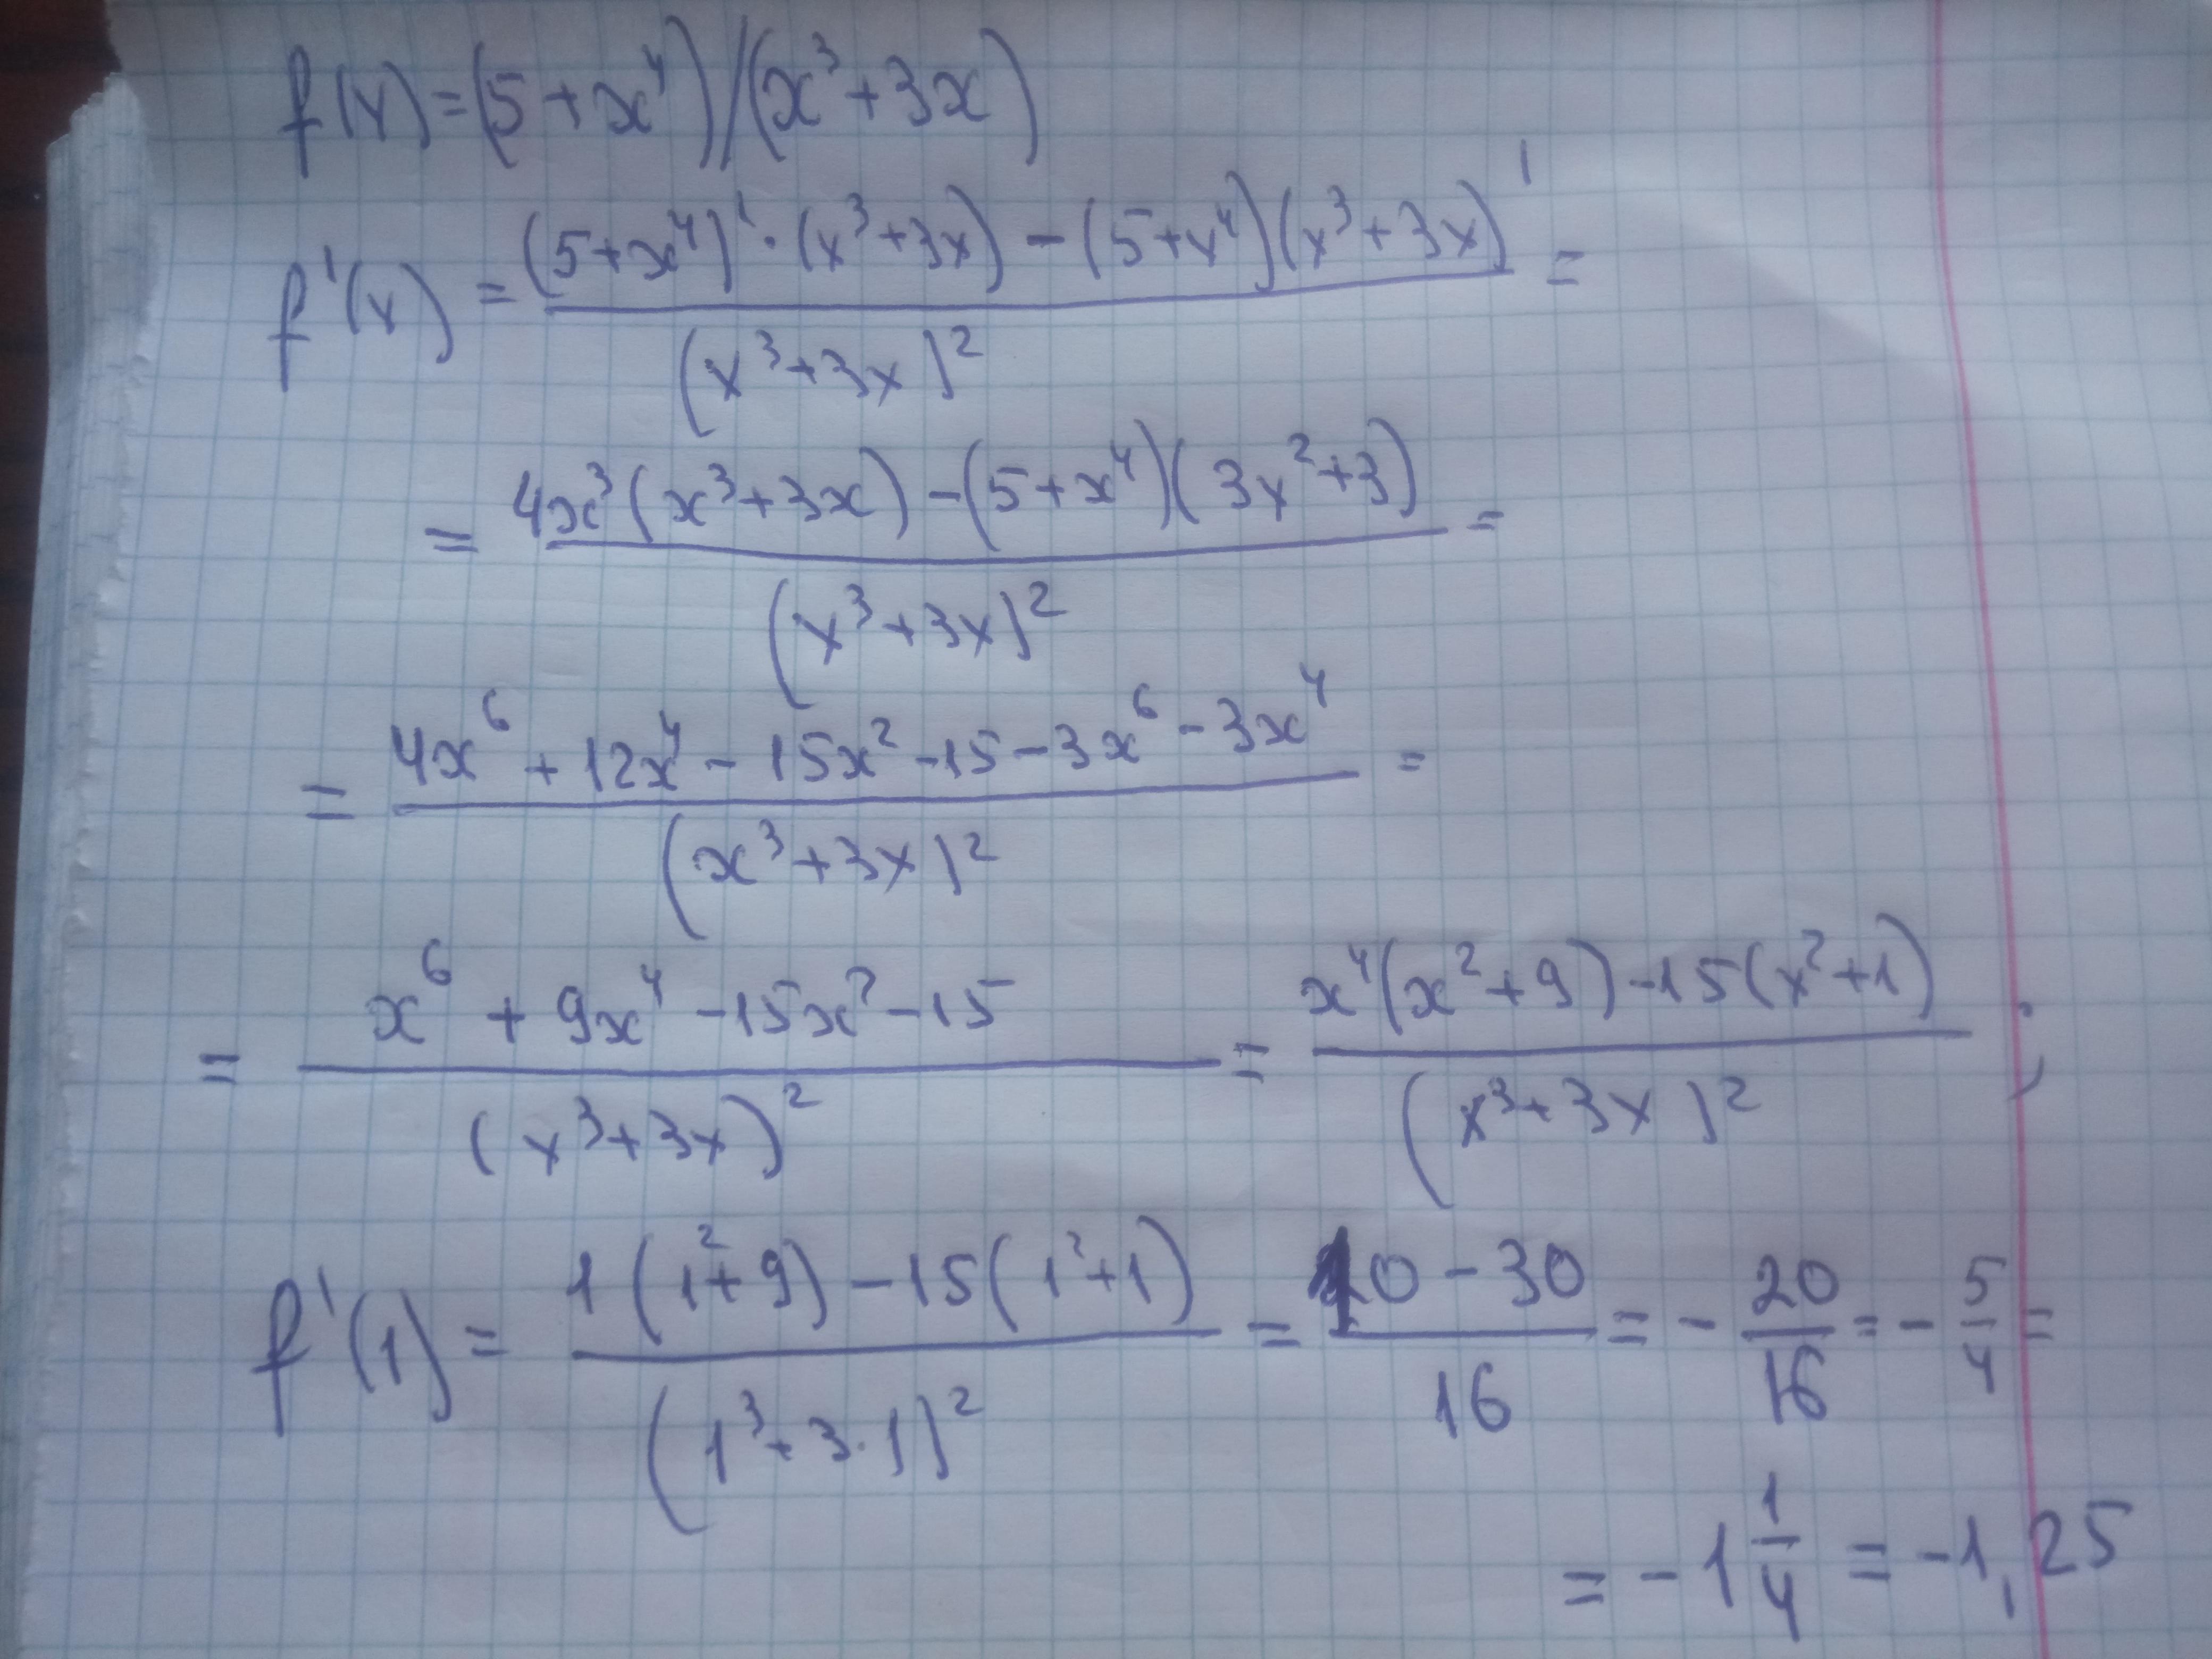 f(x)=(5+x⁴)/(x³+3x)
f'(x) = ((5+x⁴)'·(x³+3x) - (5+x⁴)(x³+3x)')/(x³+3x)² =
= (4x³(x³+3x) - (5+x⁴)(3x²+3))/(x³+3x)² =
= (4x⁶ + 12x⁴ - 15x² - 15 - 3x⁶ - 3x⁴)/(x³+3x)² =
= (x⁶ + 9x⁴ - 15x² - 15)/(x³+3x)² = (x⁴(x²+9) - 15(x²+1))/(x³+3x)² ;
f'(1) = (1(1²+9) - 15(1²+1))/(1³+3·1)² = (10-30)/16 = - 20/16 = - 5/4 =
= - 1 1/4 = -1,25